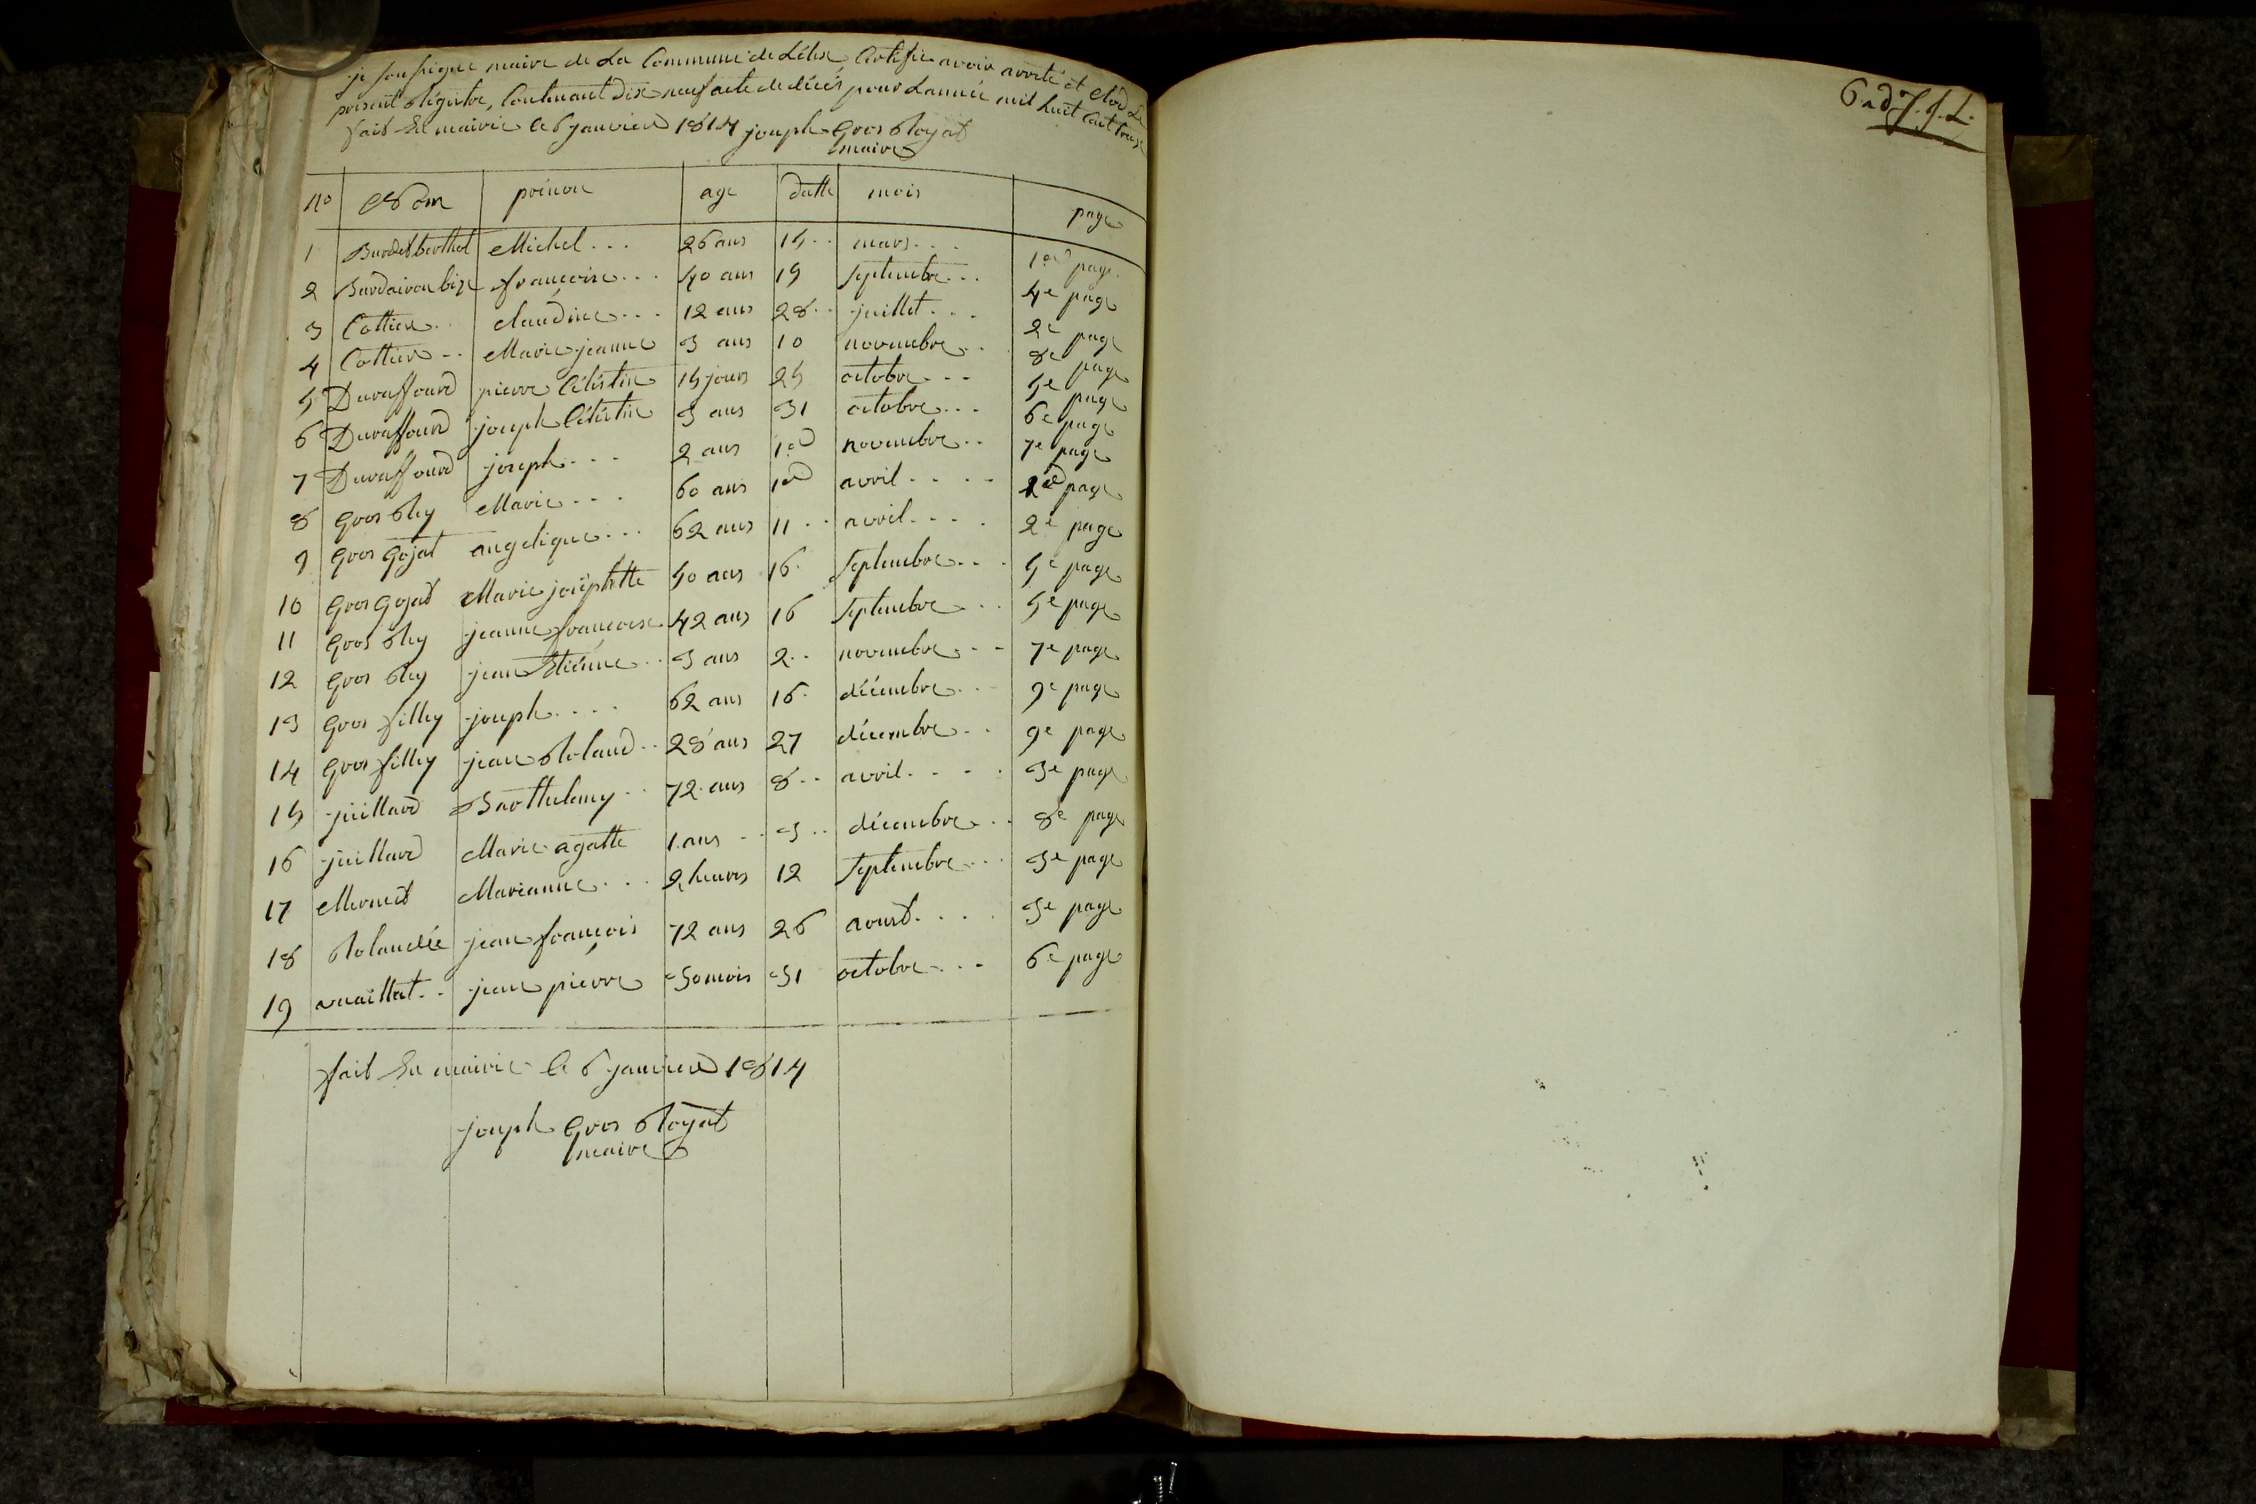 je sousigne maire de La Commune de Lélex, Certifie avoir arreté et clod Le
present Régistre, Contenant dix neuf acte de décés pour Lannée mil huit Cent treize
fait En mairie le 6 janvier 1814 joseph Gros Royat
maire
6 ad J. J. L.
No Nom prénon age datte mois page
1 Burdet berthet Michel... 26 ans 15.. mars... 1er page.
2 Burdairon bize francoise... 40 ans 19 Septembre... 4e page
3 Cottier.. claudine... 12 ans 28.. juillet... 2e page
4 Cottier.. Marie jeanne 3 ans 10 novembre.. 8e page
5 Duraffourd pierre Céléstin 15 jours 25 octobre... 5e page
6 Duraffourd joseph Céléstin 3 ans 31 octobre... 6e page
7 Duraffourd joseph... 2 ans 1er novembre.. 7e page
8 Gros Rey Marie... 60 ans 1er avril.... page
9 Gros Gojat angelique... 62 ans 11.. avril.... 2e page
10 Gros Gojat Marie joséphtte 50 ans 16. Septembre... 5e page
11 Gros Rey jeanne francoise 42 ans 16 Septembre... 5e page
12 Gros Rey jean Etiénne.. 3 ans 2.. novembre... 7e page
13 Gros filley joseph.... 62 ans 16. décembre... 9e page
14 Gros filley jean Roland.. 28 ans 27 décembre.. 9e page
15 juillard Barthelemy.. 72 ans 8.. avril.... 3e page
16 juillard Marie agatte 1 ans.. 3.. décembre.. 8e page
17 Mermet Marianne... 2 heures 12 Septembre... 3e page
18 Rolandée jean francois 72 ans 26 aoust.... 3e page
19 availlet.. jean pierre 30 mois 31 octobre... 6e page
fait En mairie le 6 janvier 1814
joseph Gros Royat
maire